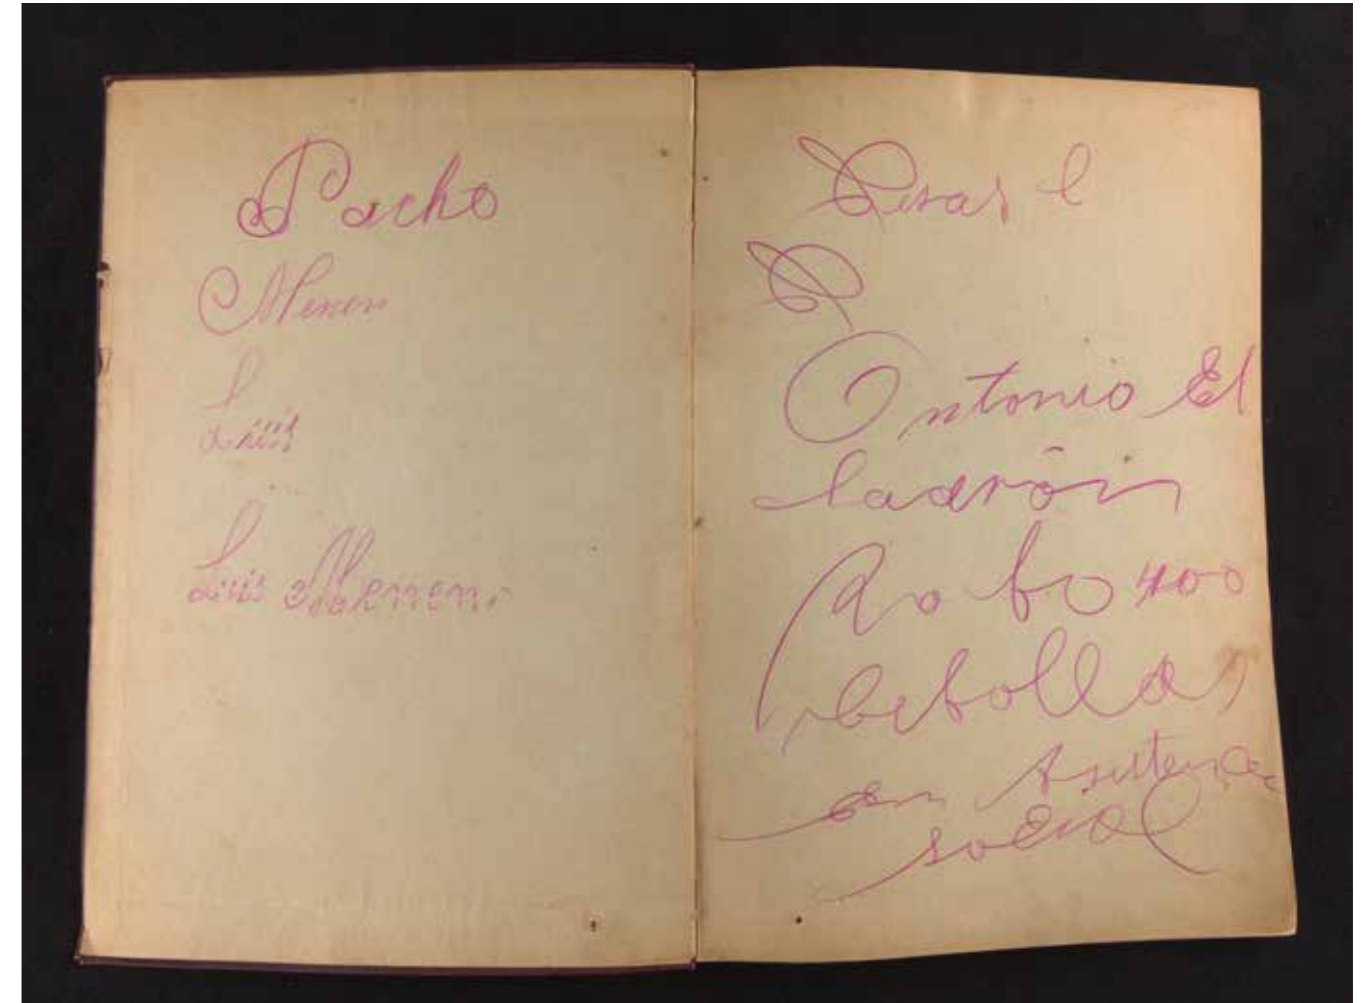 Pacho
Menem
L
Luis
Luis Menem
Cesar C
C
Antonio El
ladrón
Robo 400
cebollas
en Asistencia
social